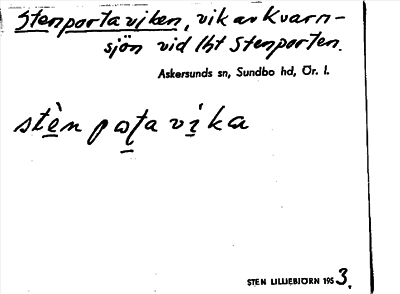 Stenportaviken, vik av Kvarn-
sjön vid lht Stenporten.
Askersunds sn, Sundbo hd, Ör. l.
stèn pata vika
STEN LILLIEBJÖRN 1953.